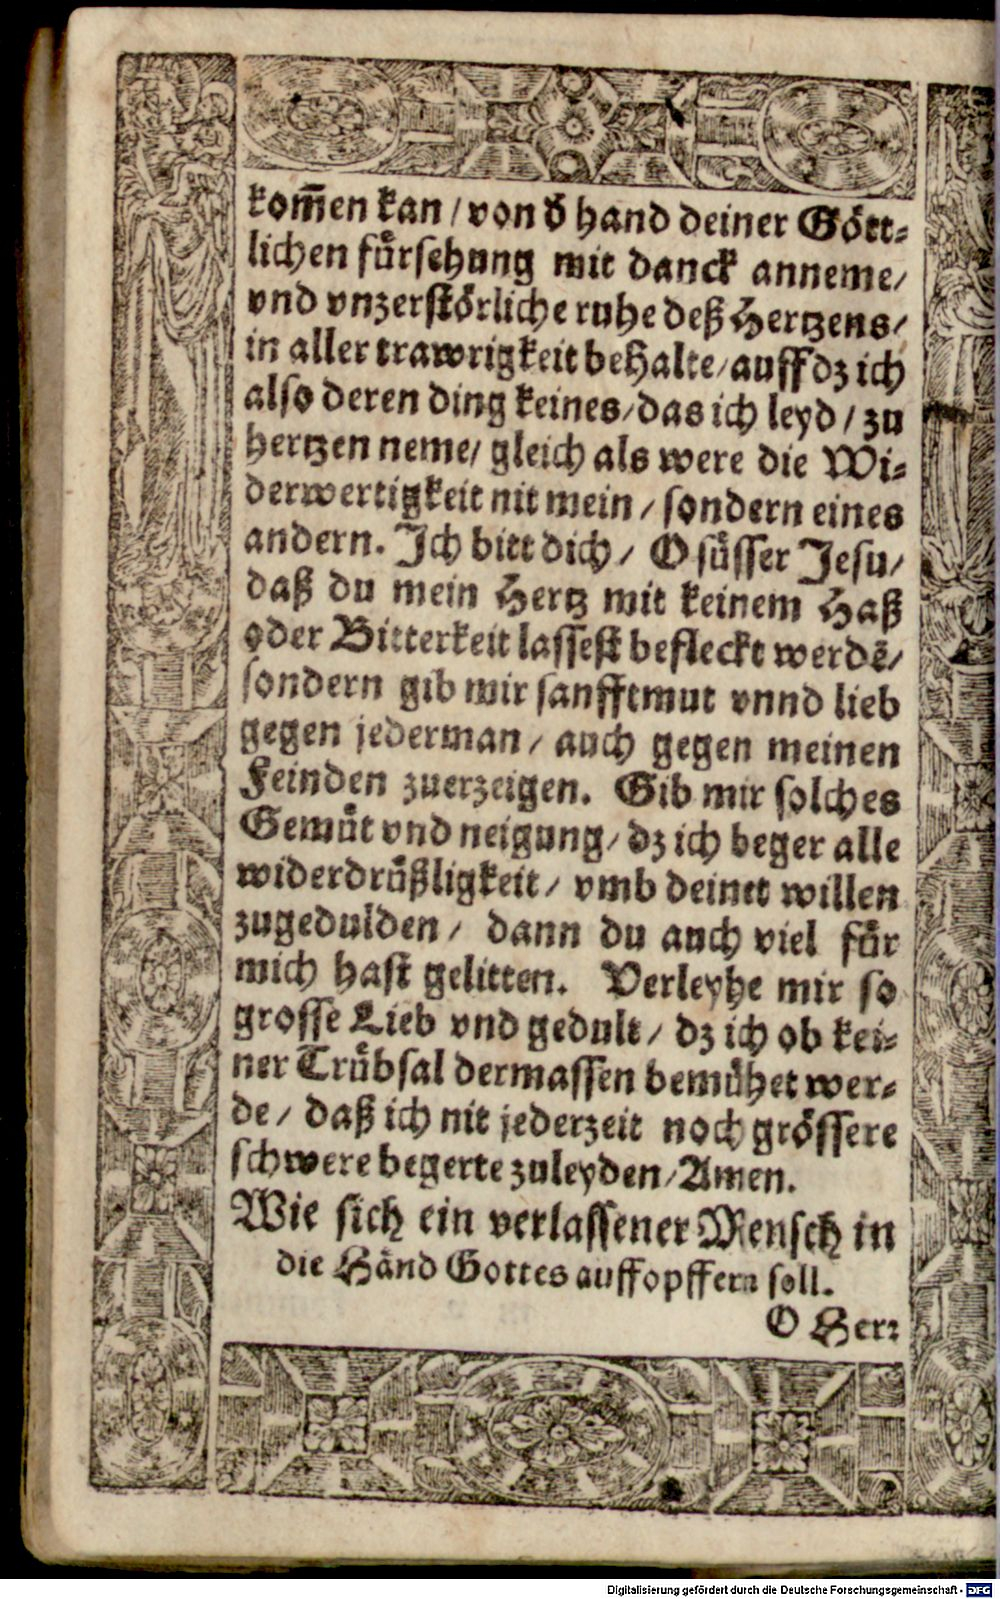 kom̃en kan / von d̕ hand deiner Gött⸗
lichen fürsehung mit danck anneme /
vnd vnzerstörliche ruhe deß Hertzens /
in aller trawrigkeit behalte / auff dz ich
also deren ding keines / das ich leyd / zu
hertzen neme / gleich als were die Wi⸗
derwertigkeit nit mein / sondern eines
andern. Ich bitt dich / O süsser Jesu /
daß du mein Hertz mit keinem Haß
oder Bitterkeit lassest befleckt werdē /
sondern gib mir sanfftmut vnnd lieb
gegen jederman / auch gegen meinen
Feinden zuerzeigen. Gib mir solches
Gemüt vnd neigung / dz ich beger alle
widerdrüßligkeit / vmb deinet willen
zugedulden / dann du auch viel für
mich hast gelitten. Verleyhe mir so
grosse Lieb vnd gedult / dz ich ob kei⸗
ner Trübsal dermassen bemühet wer⸗
de / daß ich nit jederzeit noch grössere
schwere begerte zuleyden / Amen.
Wie sich ein verlassener Mensch in
die Händ Gottes auffopffern soll.
O Herr
Digitalisierung gefördert durch die Deutsche Forschungsgemeinschaft - DFG